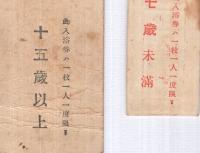 此入浴券ハ一枚一人一度限リ
十五歳以上
入浴券ハ一枚一人一度限リ
七歳未滿